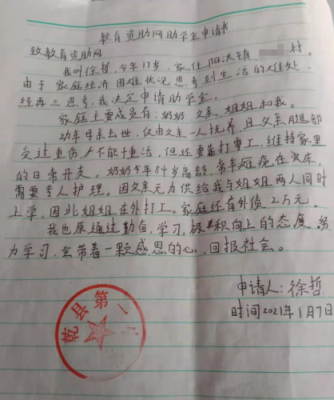 教育资助网助学金申请书
致教育资助网
我叫徐哲,今年17岁,家住阳洪镇 村,
由于家庭经济困难状况,思考到生活的难处,
经再三思考,我决定申请助学金。
家庭主要成员有:奶奶、父亲、姐姐和我。
幼年母亲去世,仅由父亲一人抚养,且父亲腿部
受过重伤,不能干重活,但还要靠打零工,维持家里
的日常开支,奶奶今年84岁高龄,常年瘫痪在床,
需要专人护理,因父亲无力供给我与姐姐两人同时
上学,因此姐姐在外打工,家庭还有外债2万元。
我也愿通过勤奋,学习,积极向上的态度,努
力学习,会带着一颗感恩的心,回报社会。
申请人:徐哲
时间2021年1月7日
乾县第一